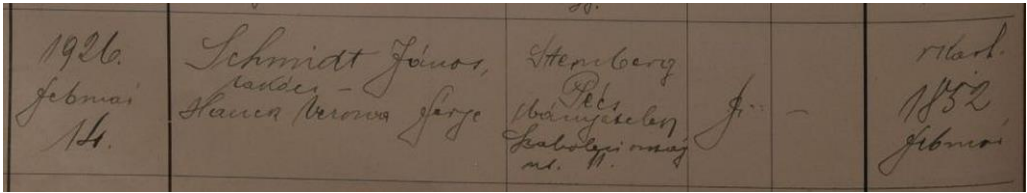 1926.
február
14.
Schmidt János,
takács –
Hanek Verona férje
Sternberg
Pécs
Bányatelep
Szabolcsiország
út. 11.
f.
–
rkath.
1852
február